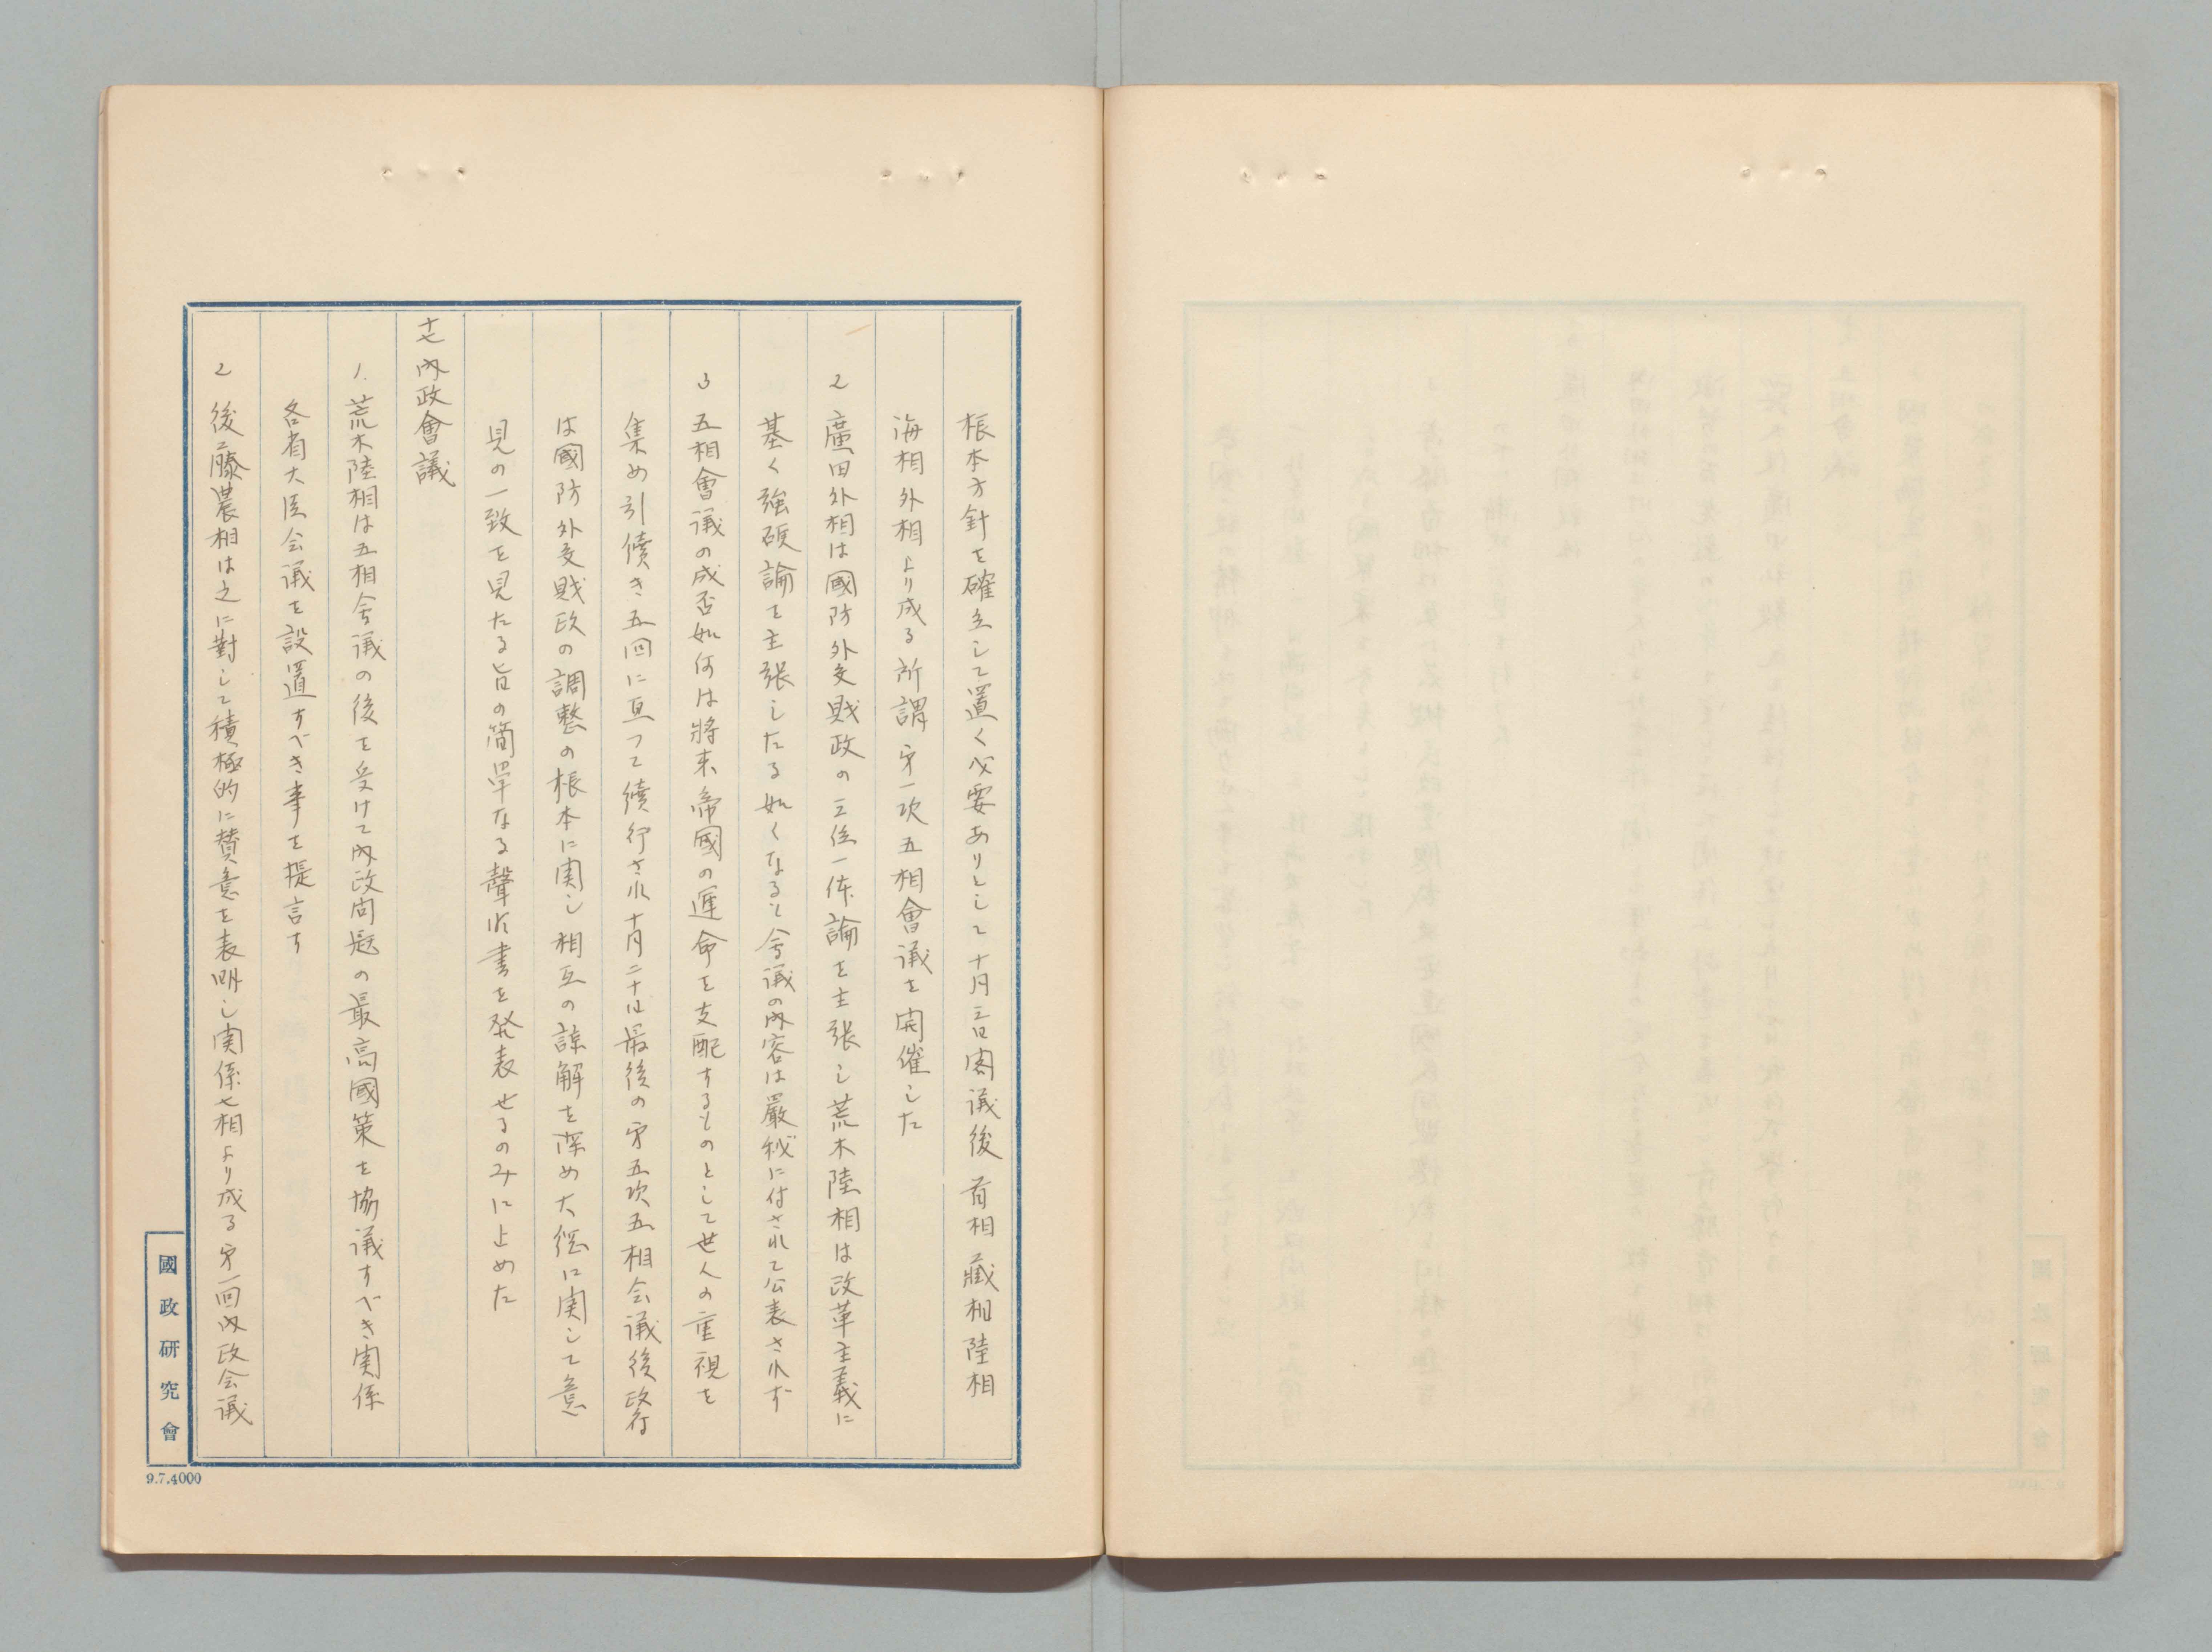 根本方針を確立して置く必要ありとして十月三日閣議後首相藏相陸相
海相外相より成る所謂才一次五相會議を開催した
2 廣田外相は國防外交財政の三位一体論を主張し荒木陸相は改革主義に
基く強硬論を主張したる如くなるも会議の内容は嚴秘に付されて公表されず
3 五相會議の成否如何は將来帝國の運命を支配するものとして世人の重視を
集め引續き五回に亘つて續行され十月二十日最後の才五次五相会議後政府
は國防外交財政の調整の根本に関し相互の諒解を深め大綱に関して意
見の一致を見たる旨の簡單なる聲明書を発表せるのみに止めた
十七 内政會議
1. 荒木陸相は五相会議の後を受けて内政問題の最高國策を協議すべき関係
各省大臣会議を設置すべき事を提言す
2 後藤農相は之に對して積極的に賛意を表明し関係七相より成る才一回内政会議
國政研究會
9.7.4000